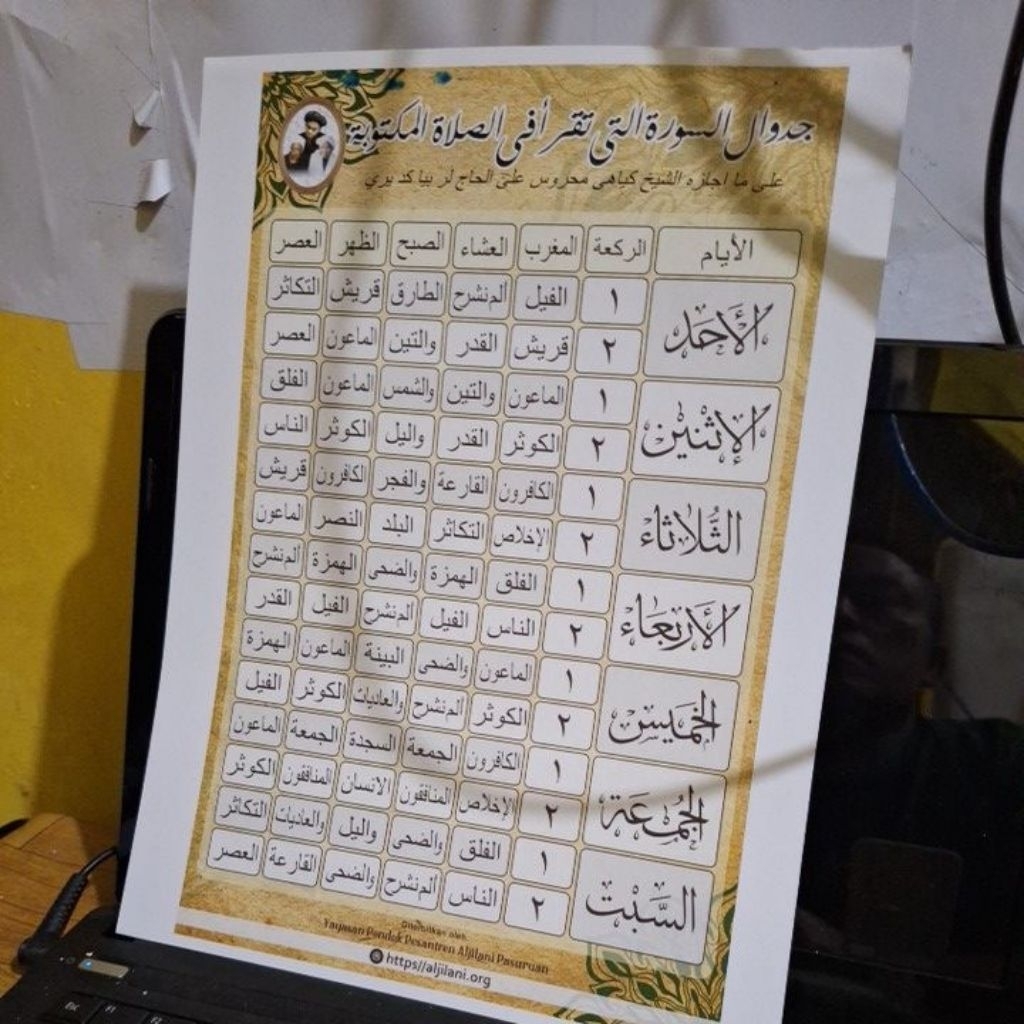 جدوال السورة التى تقرأ فى الصلاة المكتوبة
على ما اجازه الشيخ كياهى محروس على الحاج لر بيا كديري
الأيام الركعة المغرب العشاء الصبح الظهر العصر
الأحد ١ الفيل المنشرح الطارق قريش التكاثر
٢ قريش القدر والتين الماعون العصر
الإثنين ١ الماعون والتين والشمس الماعون الفلق
٢ الكوثر القدر واليل الكوثر الناس
الثلاثاء ١ الكافرون القارعة والفجر الكافرون قريش
٢ الإخلاص التكاثر البلد النصر الماعون
الأربعاء ١ الفلق الهمزة والضحى الهمزة المنشرح
٢ الناس الفيل المنشرح الفيل القدر
الخميس ١ الماعون والضحى البينة الماعون الهمزة
٢ الكوثر المنشرح والعاديات الكوثر الفيل
الجمعة ١ الكافرون الجمعة السجدة الجمعة الماعون
٢ الإخلاص المنافقون الانسان المنافقون الكوثر
السبت ١ الفلق والضحى واليل والعاديات التكاثر
٢ الناس المنشرح والضحى القارعة العصر
Diterbitkan oleh
Yayasan Pondok Pesantren Aljilani Pasuruan
https//aljilani.org
F1
F2